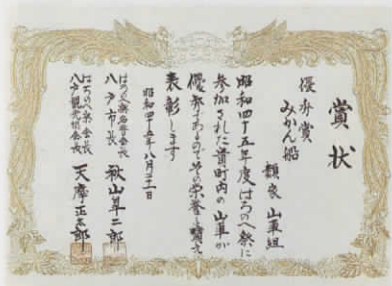 賞状
優秀賞
みかん船
類家 山車組
昭和四十五年度はちのへ祭に
参加された貴町内の山車が
優秀であるのでその栄誉を讃え
表彰します
昭和四十五年八月二十一日
はちのへ祭名誉会長
八戸市長 秋山皐二郎
はちのへ祭会長
八戸観光協会長 天摩正太郎